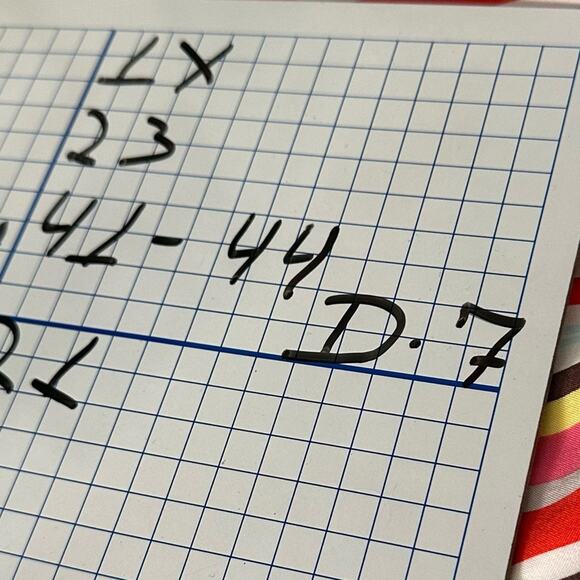 1 X
23
41 - 44
D. 7
21